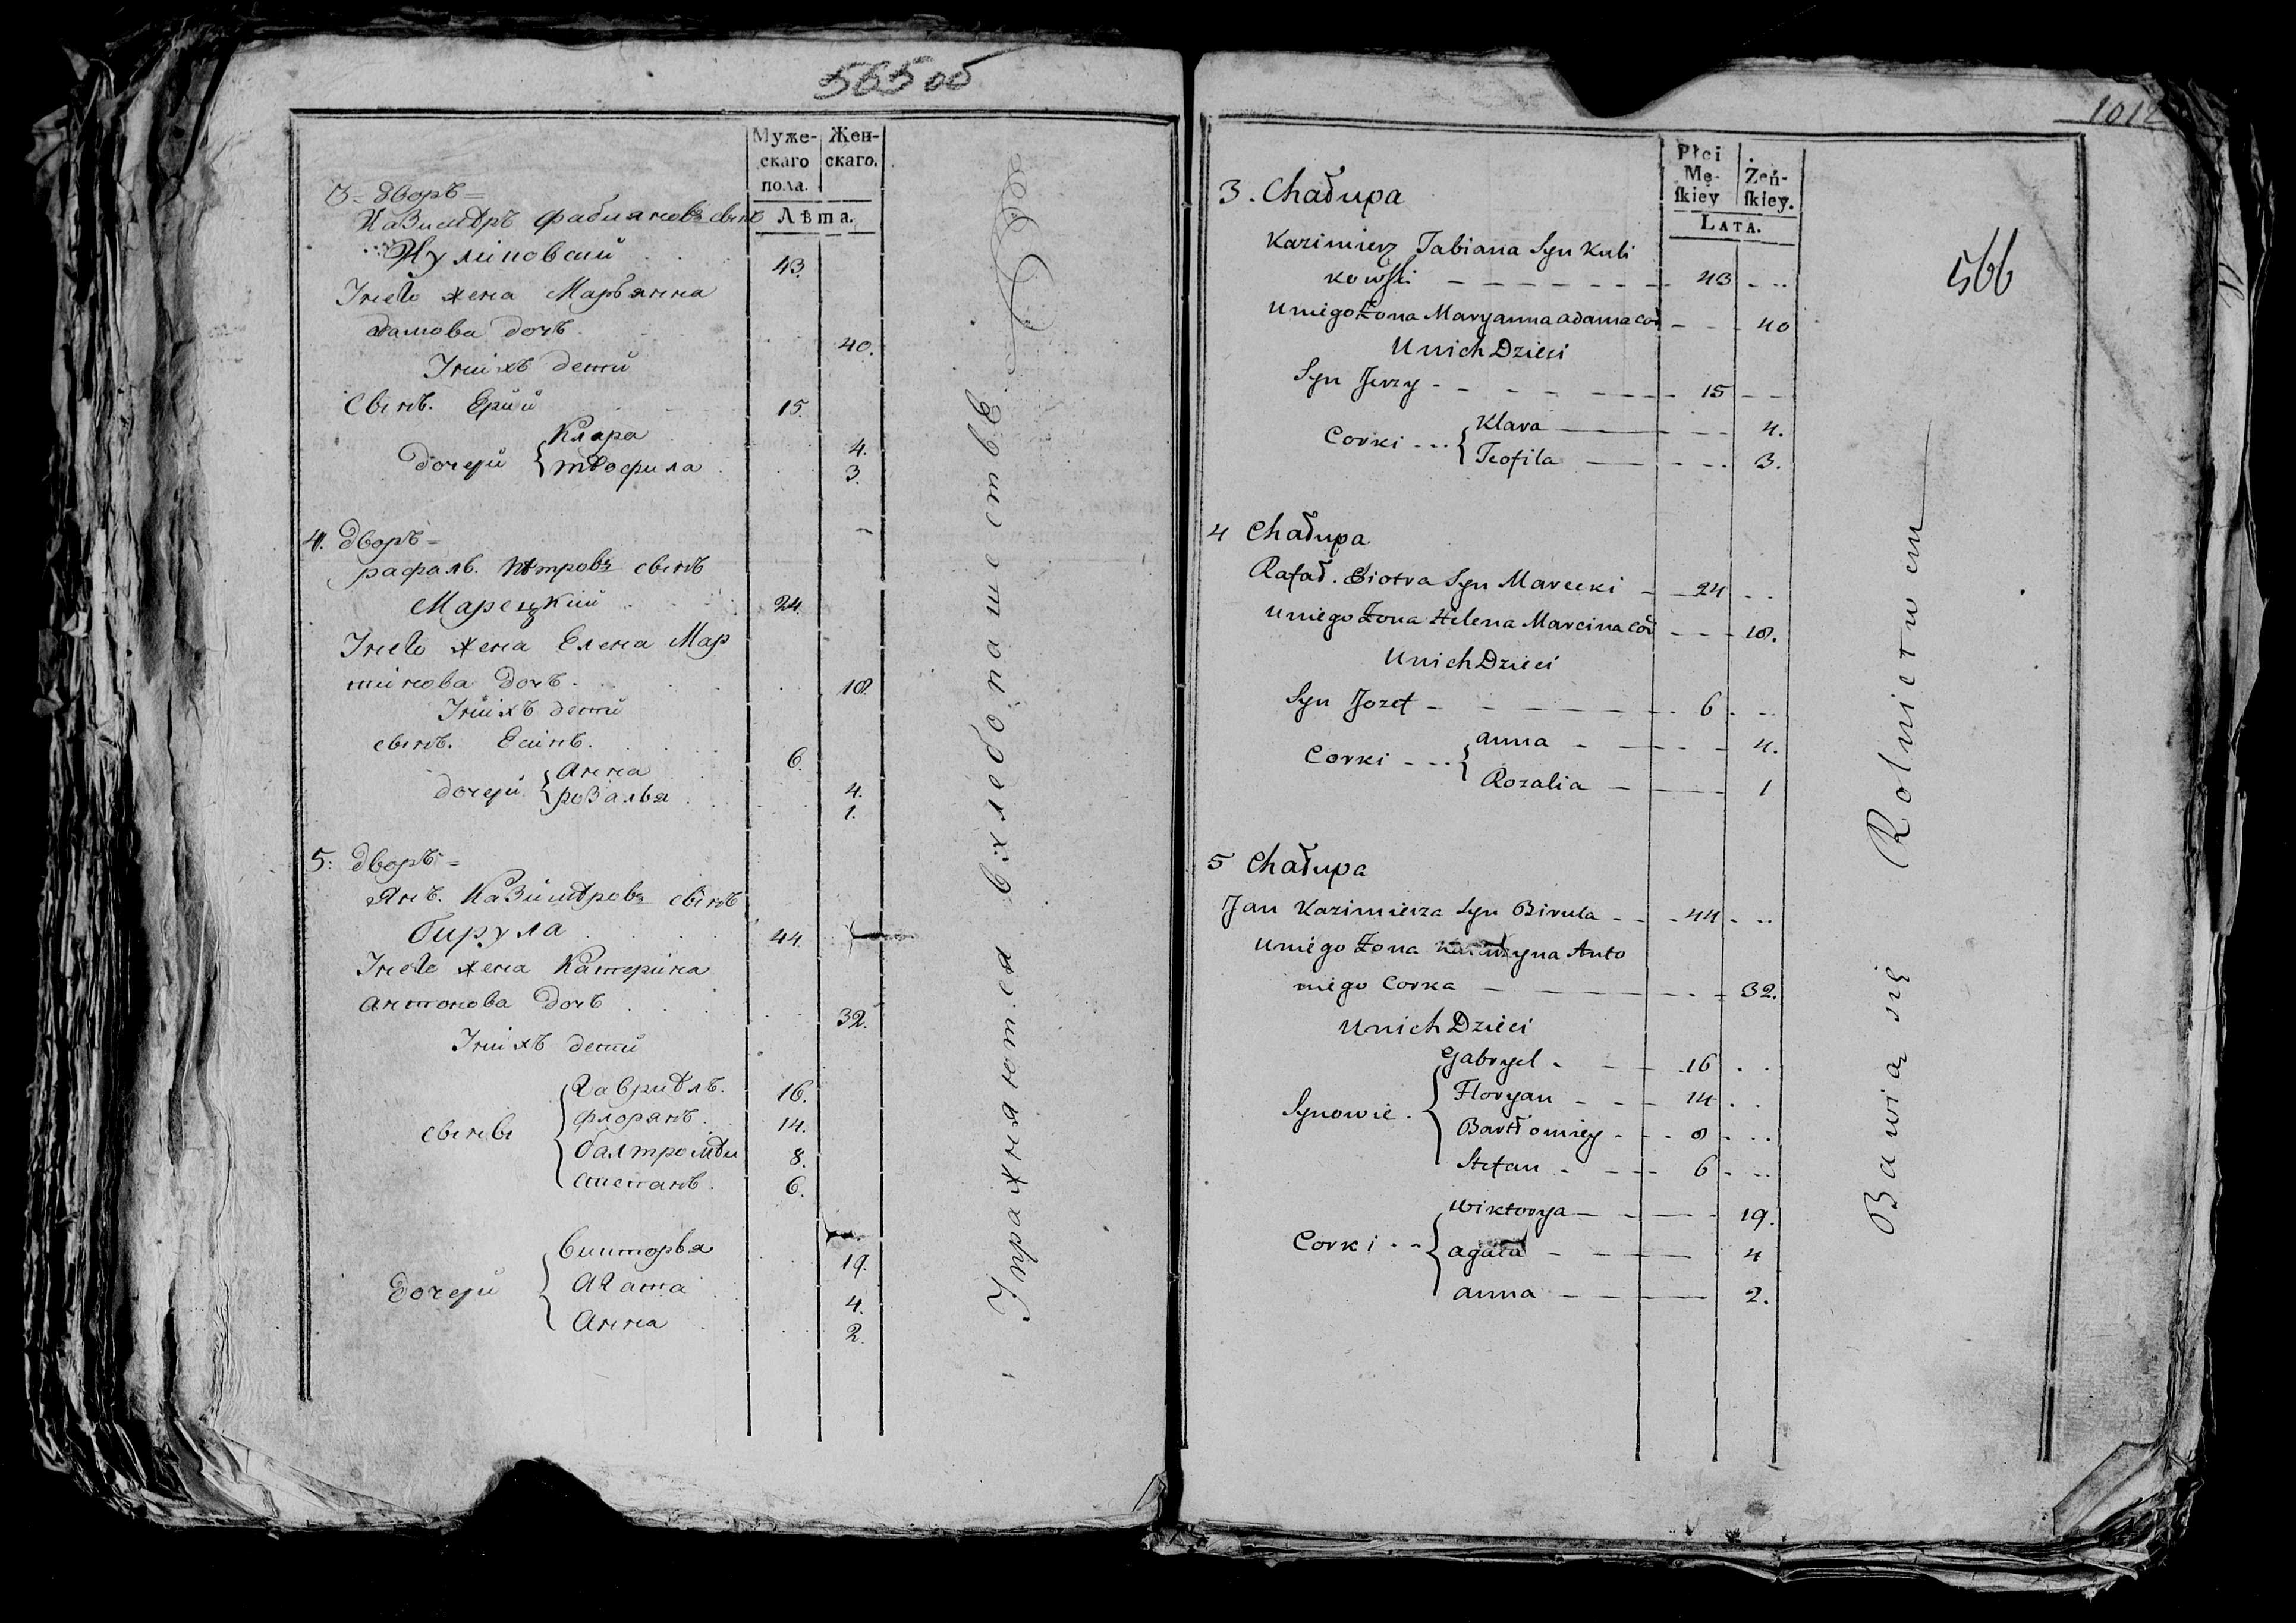 565 об
Муже-
скаго
пола.
Жен-
скаго.
Лѣта.
3 = дворъ =
Казимѣръ фабияновъ сынъ
Куликовский 43.
У него жена Марьянна
адамова дочь 40.
У нихъ дети
сынъ. Ерий 15.
дочери { Клара 4.
тѣофила 3.
4. дворъ =
рафалъ. Пѣтровъ сынъ
Марецкий 24.
У него жена Елена Мар
тинова дочь. 18.
У нихъ дети
сынъ. Есипъ. 6.
дочери { Анна 4.
розалья 1.
5: дворъ =
Янъ. Казимѣровъ сынъ
бирула 44.
У него жена Катерина
антонова дочь 32.
У нихъ дети
сыны { Гавриѣлъ. 16.
флорянъ. 14.
балтромѣи 8.
степанъ. 6.
дочери { викторья 19.
Агата 4.
Анна 2.
Упражняются в хлебопашестве
1012
566
Płci
Mę-
ſkiey
Żeń-
ſkiey.
LATA.
3. Chałupa
Kazimierz Fabiana Syn Kuli
kowski 43
U niego Żona Maryanna adama cor 40
U nich Dzieci
Syn Jerzy 15
Corki { Klara 4.
Teofila 3.
4 Chałupa
Rafał. Piotra Syn Marecki 24
U niego Żona Helena Marcina cor 18.
U nich Dzieci
Syn Jozef 6
Corki { anna 4.
Rozalia 1
5 Chałupa
Jan Kazimierza Syn Birula 44
U niego Żona Katarzyna Anto
niego Corka 32.
U nich Dzieci
Synowie. { Gabryel 16
Floryan 14
Bartłomiey 8
Stefan 6
Corki { Wiktorya 19.
agata 4
anna 2.
Bawią się Rolnictwem